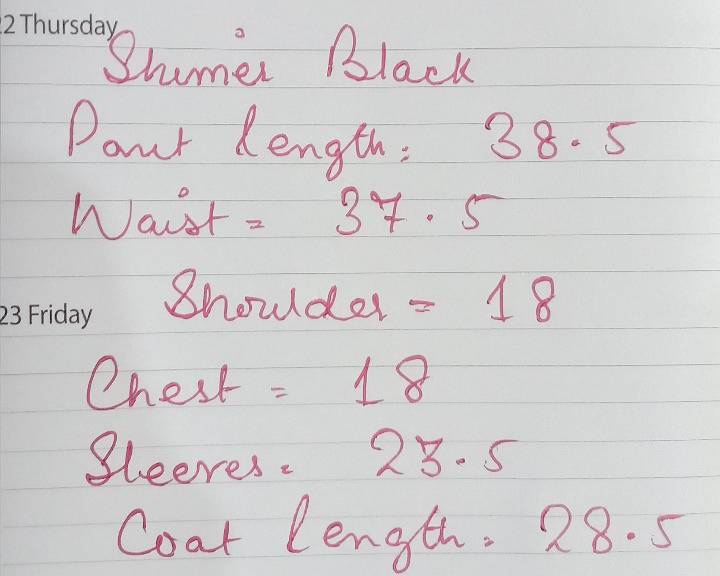 22 Thursday
Shimer Black
Pant length: 38.5
Waist = 37.5
23 Friday
Shoulder = 18
Chest = 18
Sleeves = 23.5
Coat length = 28.5